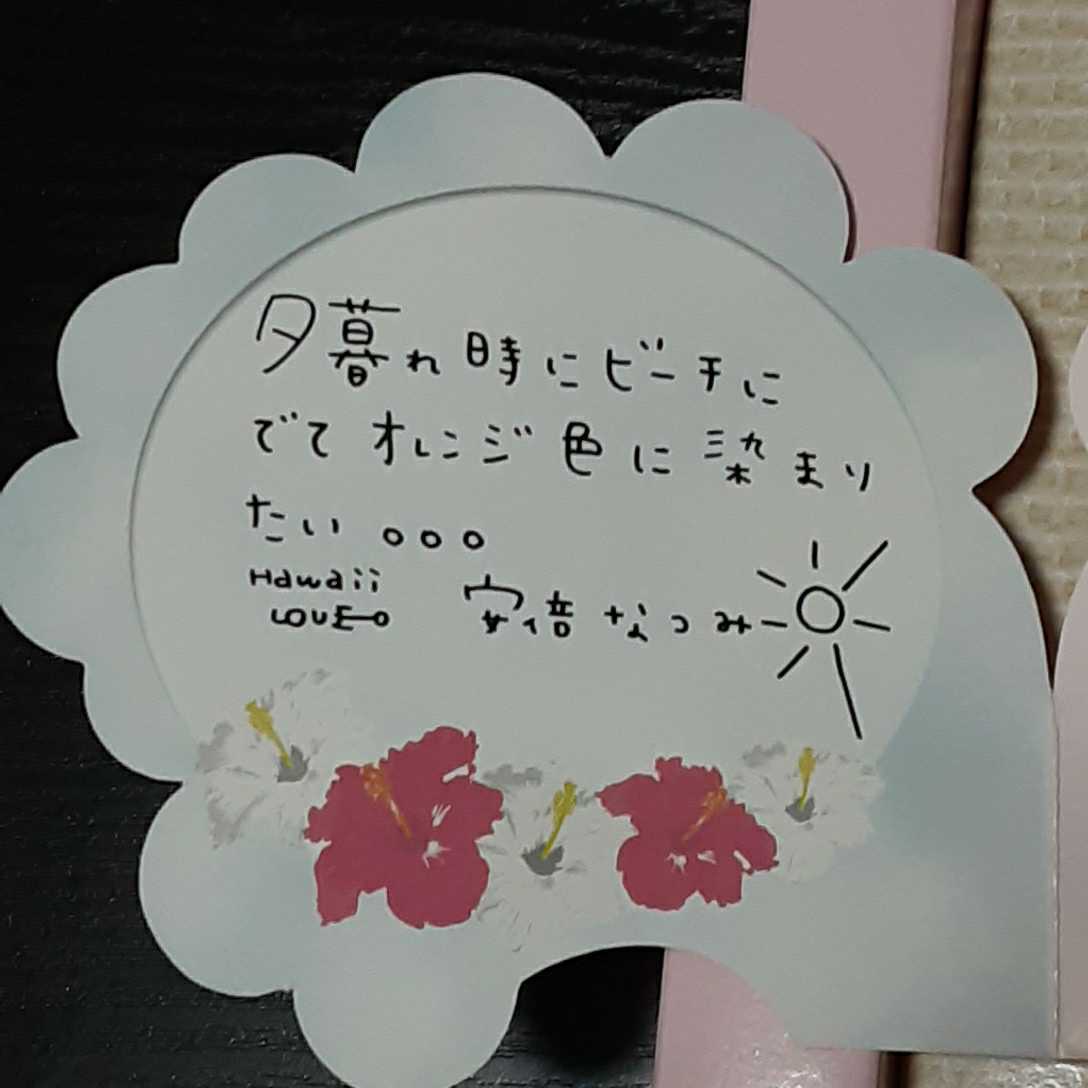 夕暮れ時にビーチに
でてオレンジ色に染まり
たい。。。
Hawaii
LOVE 安倍なつみ